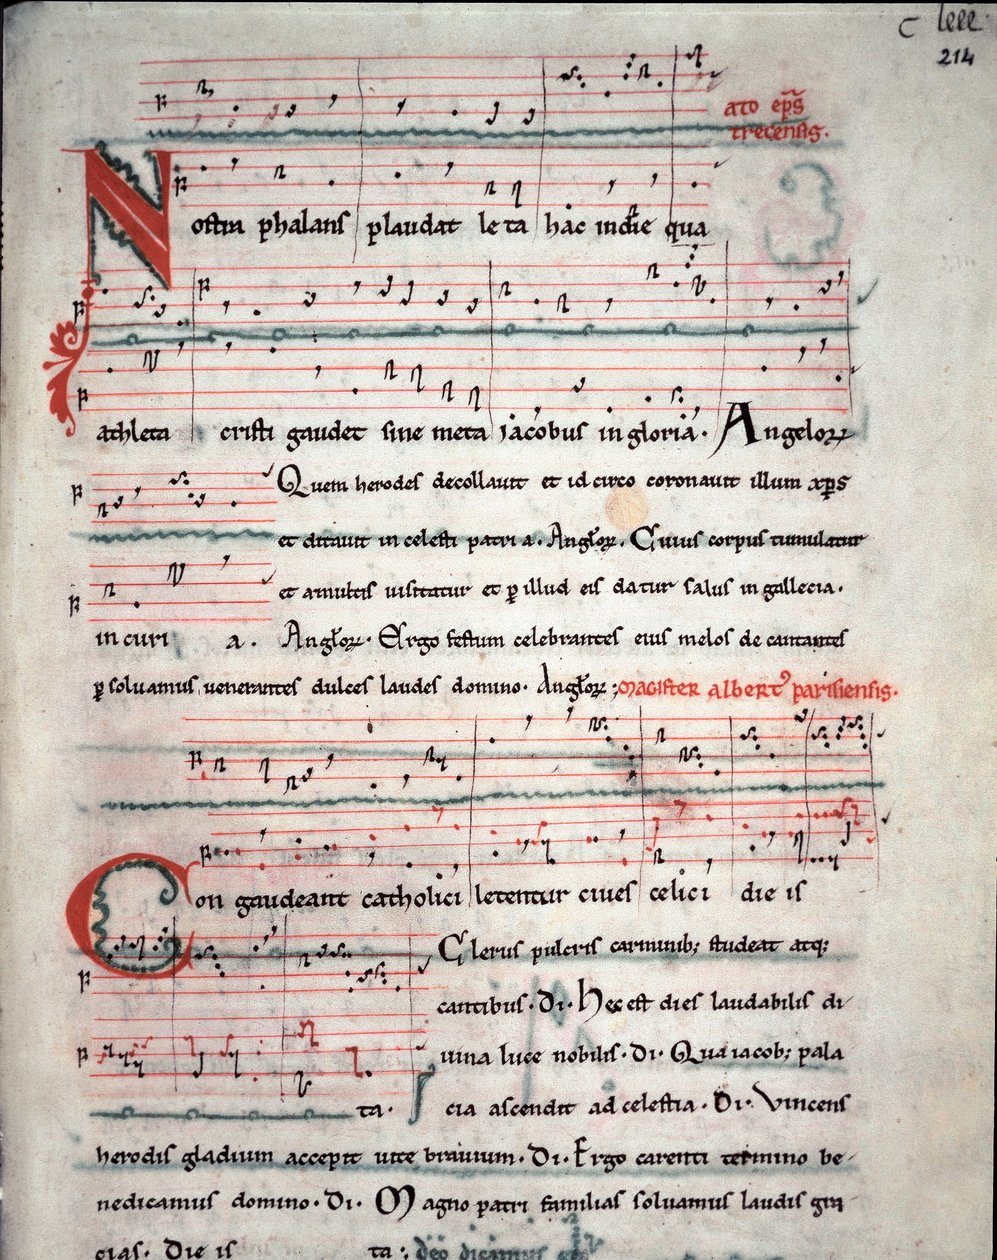 c leee
214
ato ep̃s
trecensis.
Nostra phalans plaudat leta hac in die qua
athleta cristi gaudet sine meta iacobus in gloria. Angeloꝝ
Quem herodes decollauit et id circo coronauit illum xp̃s
et ditauit in celesti patria. Angl'oꝝ. Cuius corpus tumulatur
et a multis uisitatur et ꝑ illud eis datur salus in gallecia.
in curi a. Angl'oꝝ. Ergo festum celebrantes eius melos decantantes
ꝑsoluamus uenerantes dulces laudes domino. Angl'oꝝ; magister albertꝰ parisiensis.
Congaudeant catholici letentur ciues celici die is
Clerus pulcris carminib; studeat atq;
cantibus. Di. Hec est dies laudabilis di
uina luce nobilis. Di. Qua iacob; pala
ta. cia ascendit ad celestia. Di. Vincens
herodis gladium accepit uite brauium. Di. Ergo carenti termino be
nedicamus domino. Di. Magno patri familias soluamus laudis gra
cias. Die is ta; deo dicamus